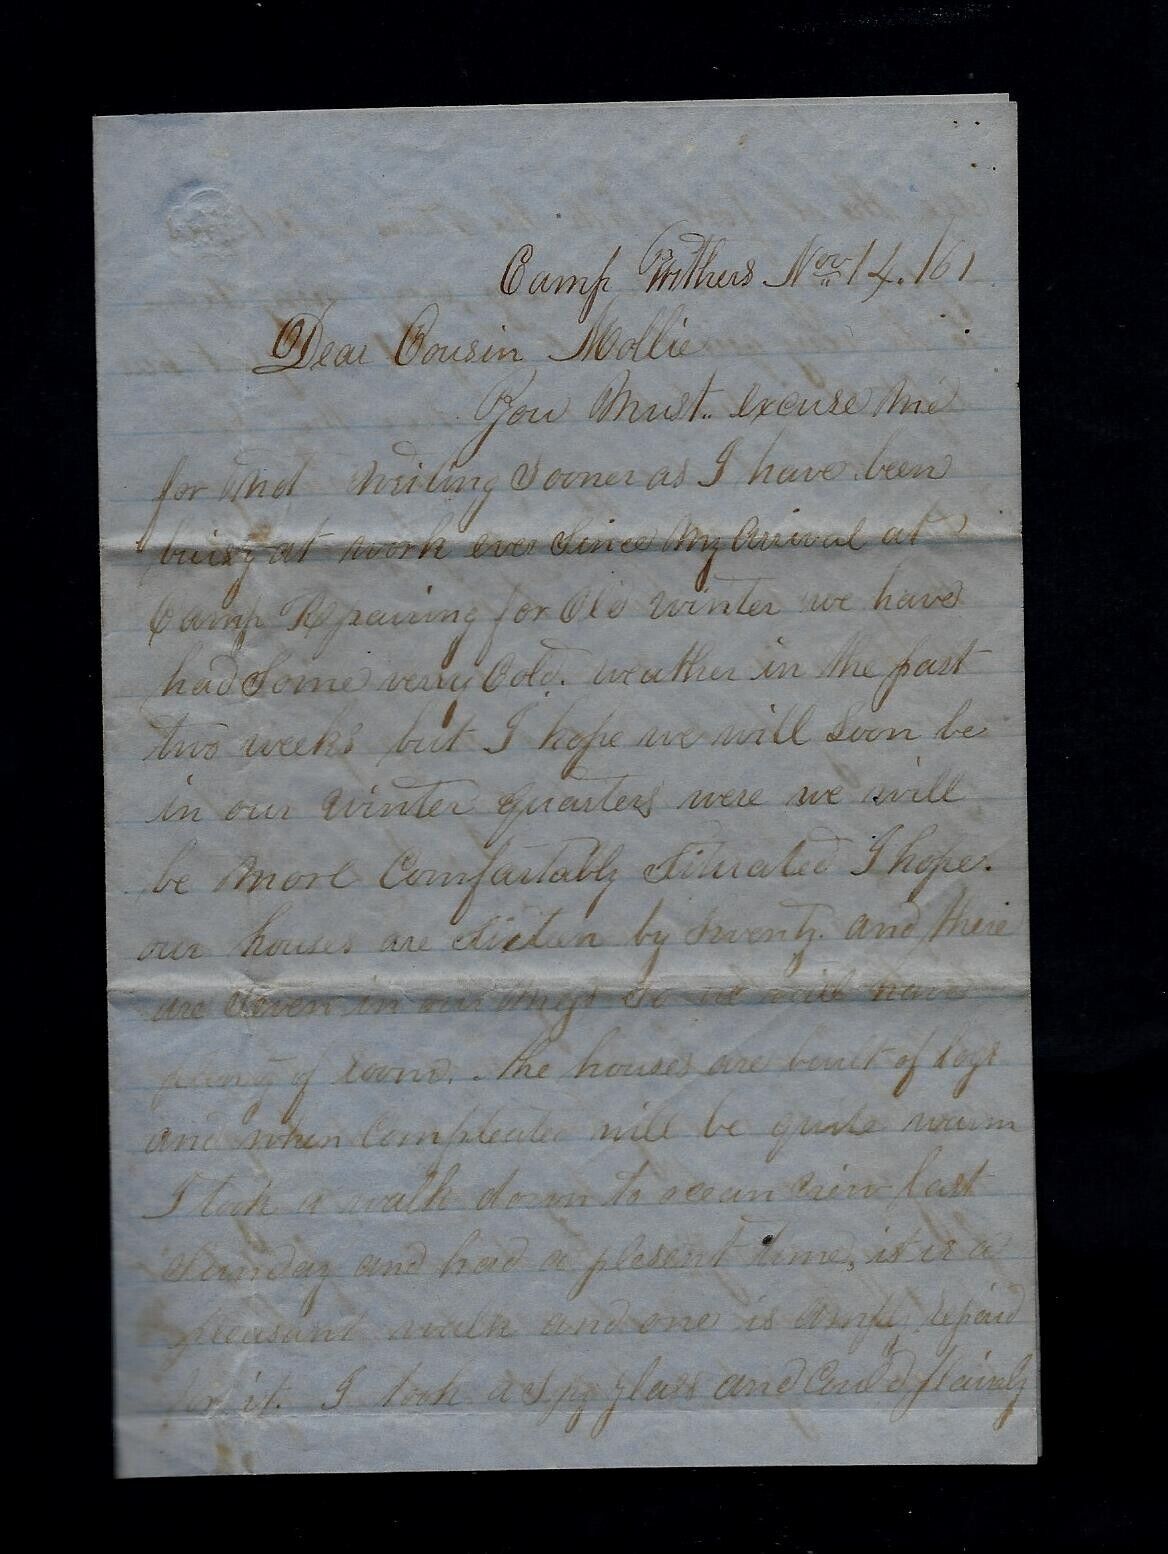 Camp Withers Nov 14. /61
Dear Cousin Mollie
You Must. excuse Me
for Not Writing Sooner as I have been
buisy at work ever Since My Arrival at
Camp Repairing for Old Winter we have
had Some verry Cold. weather in the past
two weeks but I hope we will Soon be
in our Winter Quarters were we will
be More Comfortably Situated I hope.
our houses are Sixteen by Twenty. and there
are Seven in our Mess So we will have
plenty of room. The houses are built of logs
and when Compleated will be quite warm
I took a walk down to ocean view last
Sunday and had a plesent time, it is a
pleasant walk and one is amply repaid
for it. I took a spy glass and Could plainly